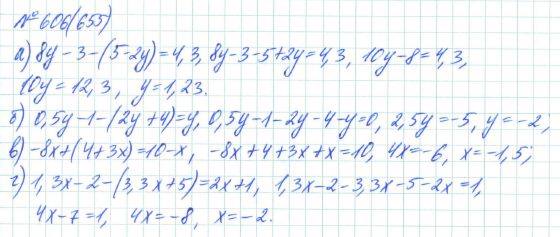 № 606(655)
а) 8y - 3 - (5 - 2y) = 4,3, 8y - 3 - 5 + 2y = 4,3, 10y - 8 = 4,3,
10y = 12,3, y = 1,23.
б) 0,5y - 1 - (2y + 4) = y, 0,5y - 1 - 2y - 4 - y = 0, 2,5y = -5, y = -2;
в) -8x + (4 + 3x) = 10 - x, -8x + 4 + 3x + x = 10, 4x = -6, x = -1,5;
г) 1,3x - 2 - (3,3x + 5) = 2x + 1, 1,3x - 2 - 3,3x - 5 - 2x = 1,
4x - 7 = 1, 4x = -8, x = -2.